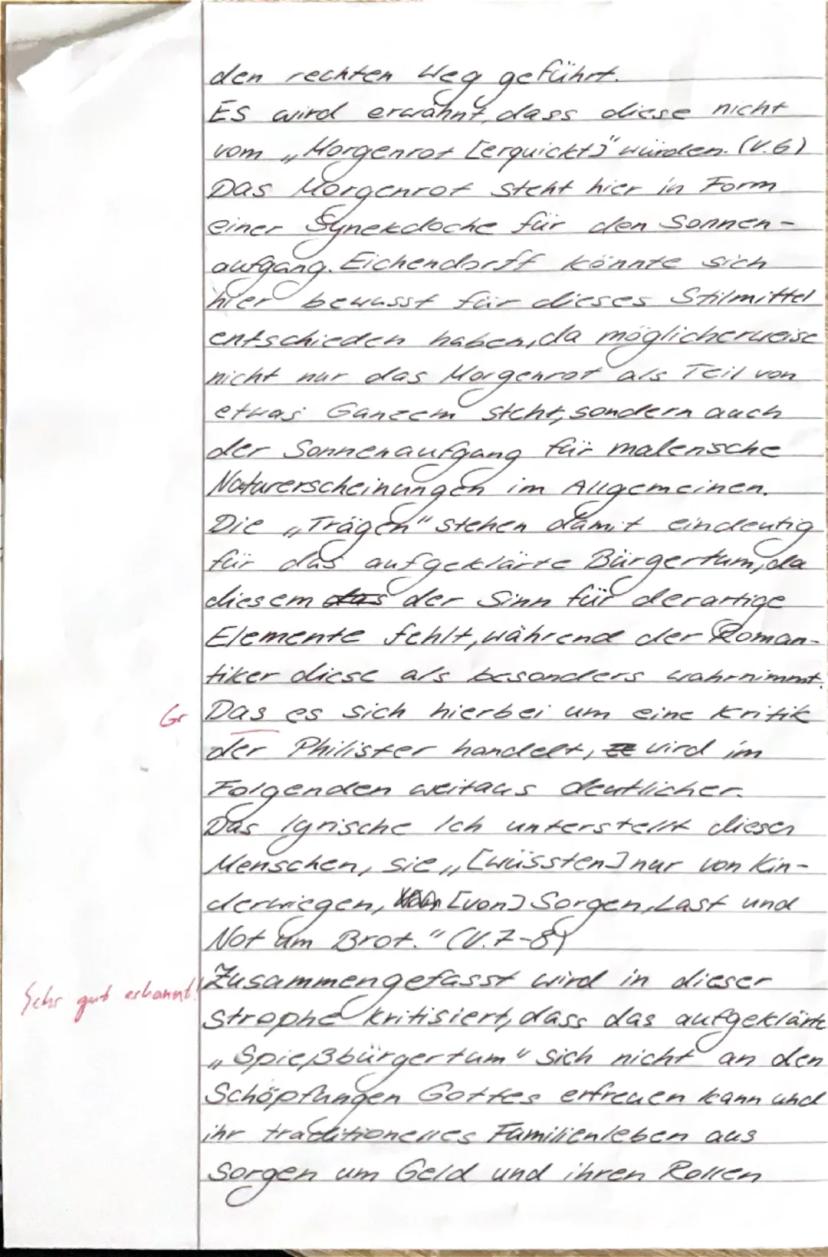 den rechten Weg geführt.
Es wird erwähnt, dass diese nicht
vom „Morgenrot [erquickt]" würden. (V.6)
Das Morgenrot steht hier in Form
einer Synekdoche für den Sonnen-
aufgang. Eichendorff könnte sich
hier bewusst für dieses Stilmittel
entschieden haben, da möglicherweise
nicht nur das Morgenrot als Teil von
etwas Ganzem steht, sondern auch
der Sonnenaufgang für malerische
Naturerscheinungen im Allgemeinen.
Die „Trägen" stehen damit eindeutig
für das aufgeklärte Bürgertum, da
diesem das der Sinn für derartige
Elemente fehlt, während der Roman-
tiker diese als besonders wahrnimmt.
Gr Das es sich hierbei um eine Kritik
der Philister handelt, wird im
Folgenden weitaus deutlicher.
Das lyrische Ich unterstellt diesen
Menschen, sie „[wüssten] nur von Kin-
derwiegen, [von] Sorgen, Last und
Not um Brot." (V.7-8)
Sehr gut erkannt! Zusammengefasst wird in dieser
Strophe kritisiert, dass das aufgeklärte
„Spießbürgertum" sich nicht an den
Schöpfungen Gottes erfreuen kann und
ihr traditionelles Familienleben aus
Sorgen um Geld und ihren Rollen